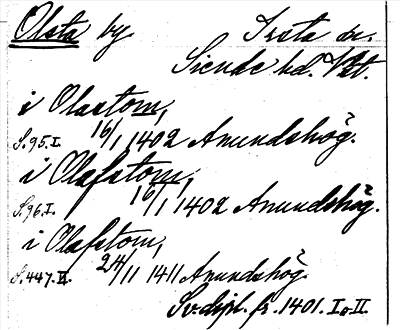 Olsta by Irsta sn.
Siende hd. Vstl.
i Olastom,
S. 95. I. 16/1 1402 Anundshög.
i Olafstom,
S. 96. I. 16/1 1402 Anundshög.
i Olafstom,
S. 447. II. 24/11 1411 Anundshög.
Sv. dipl. fr. 1401. I o II.